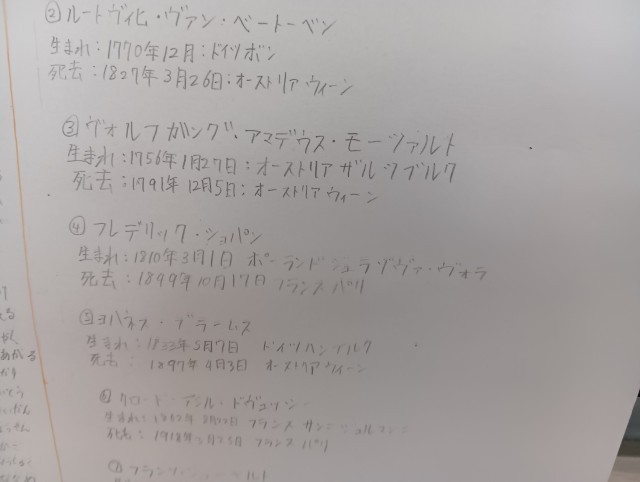 ②ルートヴィヒ・ヴァン・ベートーベン
生まれ：1770年12月：ドイツボン
死去：1827年3月26日：オーストリア ウィーン
③ヴォルフガング・アマデウス・モーツァルト
生まれ：1756年1月27日：オーストリア ザルツブルク
死去：1791年12月5日：オーストリア ウィーン
④フレデリック・ショパン
生まれ：1810年3月1日 ポーランド ジェラゾヴァ・ヴォラ
死去：1899年10月17日 フランス パリ
⑤ヨハネス・ブラームス
生まれ：1833年5月7日 ドイツハンブルク
死去：1897年4月3日 オーストリア ウィーン
⑥クロード・アシル・ドヴュッシー
生まれ： フランス サン
死去：1918年3月25日 フランス パリ
⑦フランツ